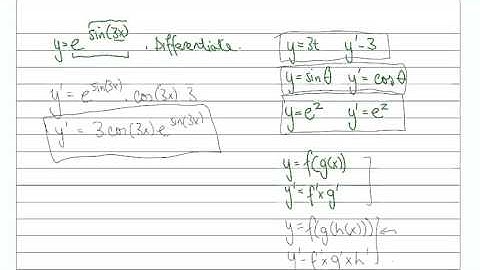 y=e^sin(3x) . Differentiate.
y'= e^sin(3x) . cos(3x) 3
y' = 3cos(3x)e^sin(3x)
y=3t y'-3
y=sinθ y'=cosθ
y=e^z y'=e^z
y=f(g(x))
y'=f'×g'
y=f(g(h(x)))
y'-f'×g'×h'